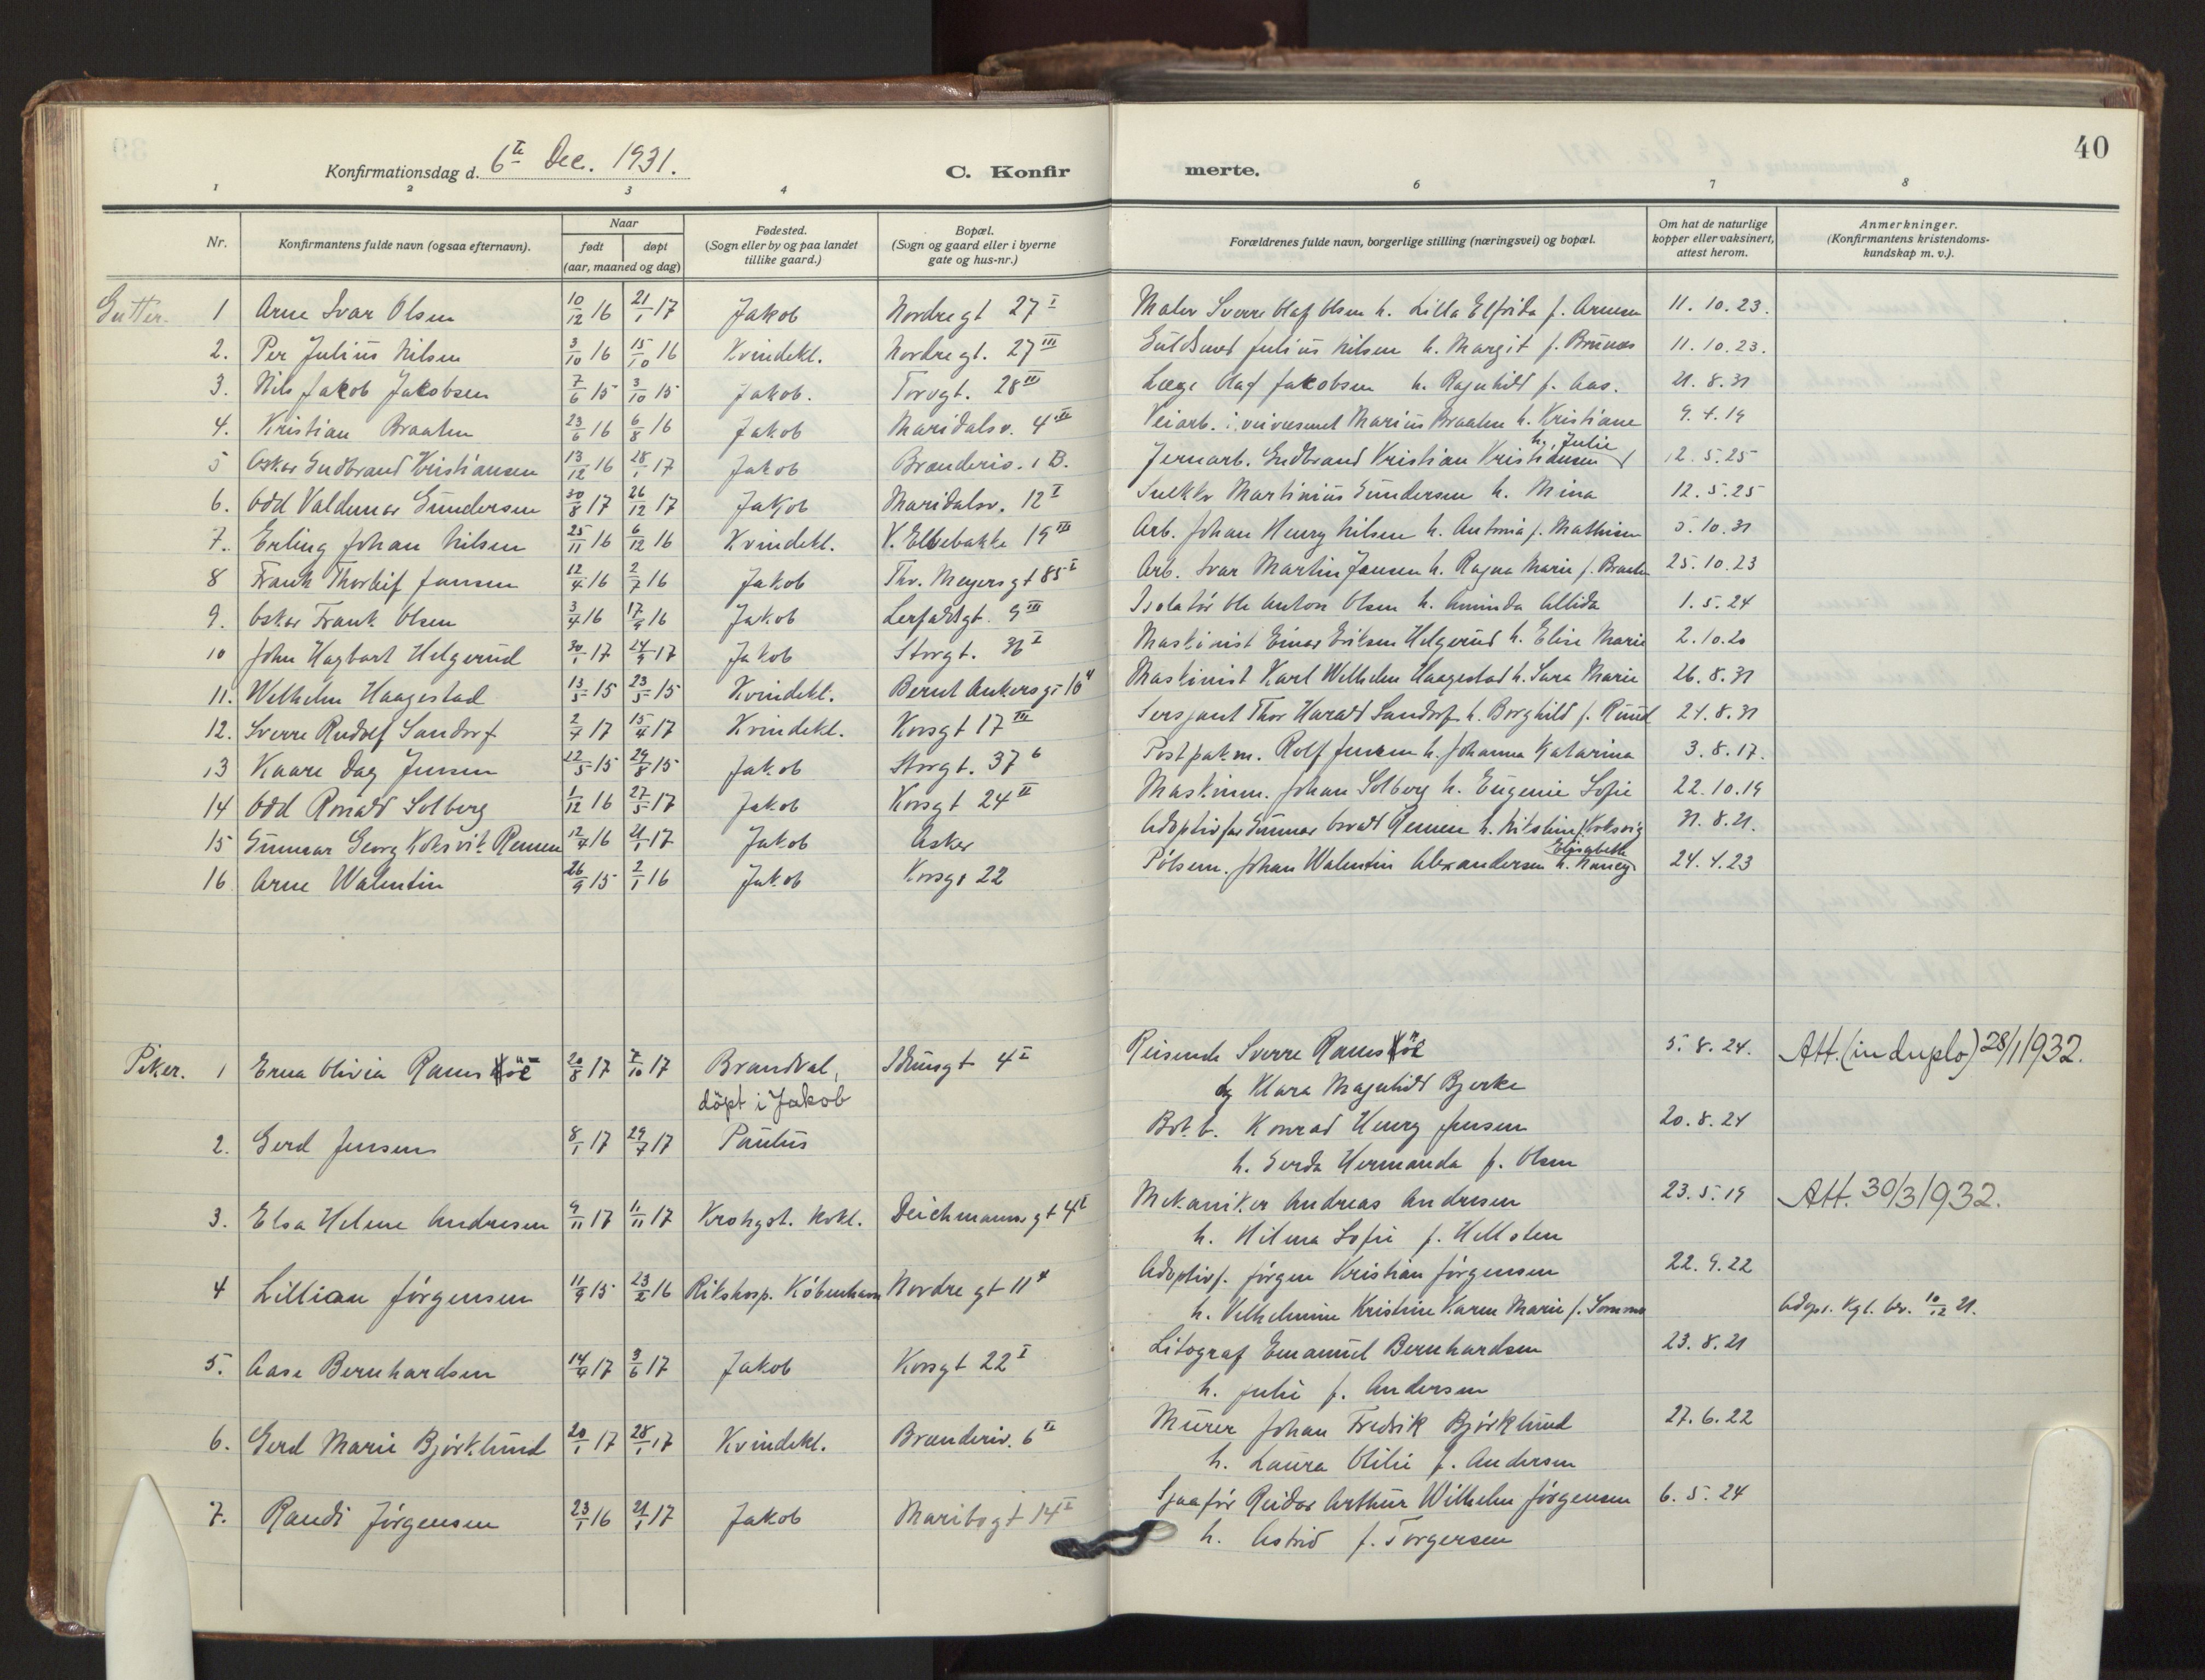 40
Konfirmationsdag d. 6te Dec. 1931. C. Konfir merte.
1 2 3 4 6 7 8
Nr. Konfirmantens fulde navn (ogsaa efternavn). Naar født døpt (aar, maaned og dag) Fødested. (Sogn eller by og paa landet tillike gaard.) Bopæl. (Sogn og gaard eller i byerne gate og hus-nr.) Forældrenes fulde navn, borgerlige stilling (næringsvei) og bopæl. Om hat de naturlige kopper eller vaksinert, attest herom. Anmerkninger. (Konfirmantens kristendoms-kundskap m. v.).
Gutter. 1 Arne Ivar Olsen 10/12 16 21/1 17 Jakob Nordregt 27 I Maler Sverre Olaf Olsen h. Lilla Elfrida f. Arnesen 11.10.23.
2. Per Julius Nilsen 3/10 16 15/10 16 Kvindekl. Nordregt. 27 III Guldsmed Julius Nilsen h. Margit f. 11.10.23.
3. Nils Jakob Jakobsen 7/6 15 3/10 15 Jakob. Torvgt. 28 III Læge Olaf Jakobsen h. Ragnhild f. Aas. 21.8.31
4. Kristian Braaten 23/6 16 6/8 16 Jakob Maridalsv. 4 II Veiarb. i veivesenet Marius Braaten h. Kristiane 9.4.19
5 Oskar Gudbrand Kristiansen 13/12 16 28/1 17 Jakob Brenneriv. 1 B. Jernarb. Gudbrand Kristian Kristiansen h. Julie 12.5.25
6. Odd Valdemar Gundersen 30/8 17 26/12 17 Jakob Maridalsv. 12 I Snekker Martinius Gundersen h. Mina 12.5.25
7. Erling Johan Nilsen 25/11 16 6/12 16 Kvindekl. V. Elvebakke 19 III Arb. Johan Henry Nilsen h. Antonia f. Mathisen 5.10.31
8 Frank Thorleif Jansen 12/4 16 2/7 16 Jakob Thv. Meyersgt 85 I Arb. Ivar Martin Jansen h. Ragna Marie f. Braaten 25.10.23
9. Oskar Frank Olsen 3/4 16 17/9 16 Jakob Lerfaldsgt. 9 III Isolatör Ole Anton Olsen h. Aminda Allida 1.5.24
10 John Hagbart Helgerud 30/1 17 24/9 17 Jakob Storgt. 36 I Maskinist Einar Eriksen Helgerud h. Elise Marie 2.10.20
11. Wilhelm Haagestad 13/5 15 23/5 15 Kvindekl. Bernt Ankersgt 10 4 Maskinist Karl Wilhelm Haagestad h. Sara Marie 26.8.31
12. Sverre Rudolf Sandorf 2/4 17 15/4 17 Kvindekl. Korsgt 17 III Sersjant Thor Harald Sandorf h. Borghild f. Ruud 24.8.31
13 Kaare Dag Jensen 22/5 15 29/8 15 Jakob Storgt. 37 6 Postpakm. Rolf Jensen h. Johanna Katarina 3.8.17.
14 Odd Ronald Solberg 1/12 16 27/5 17 Jakob Korsgt 24 II Maskinm. Johan Solberg h. Eugenie Sofie 22.10.19
15 Gunnar Georg Koksvik Remen 12/4 16 21/1 17 Jakob Asker Adoptivfar Gunnar Osvald Remen h. Nikoline f. Koksvig 31.8.21.
16 Arne Walentin 26/9 15 2/1 16 Jakob Korsgt 22 Pölsem. Johan Walentin Alexandersen h. Nancy Elisabeth 24.4.23
Piker. 1 Erna Olivia 20/8 17 7/10 17 Brandval, döpt i Jakob Idunsgt 4 I Reisende Sverre 5.8.24. Att. (in duplo) 28/1 1932.
og Klara Magnhild Bjerke
2. Gerd Jensen 8/1 17 29/7 17 Paulus Konrad Henry Jensen 20.8.24
h. Gerda Hermanda f. Olsen
3. Elsa Helene Andresen 9/11 17 11/11 17 Deichmansgt 4 I Mekaniker Andreas Andresen 23.5.19 Att. 30/3 1932.
h. Hilma Sofie f. Hellsten
4 Lillian Jörgensen 11/9 15 23/2 16 Rikshosp. Köbenhavn Nordregt 11 4 Adoptivf. Jörgen Kristian Jörgensen 22.9.22
h. Vilhelmine Kristine Karen Marie f. Adopt. Kgl. bev. 10/12 21.
5. Aase Bernhardsen 14/4 17 3/6 17 Jakob Korsgt 22 I Litograf Emanuel Bernhardsen 23.8.21
h. Julie f. Andersen
6. Gerd Marie Björklund 20/1 17 28/1 17 Kvindekl. Brenneriv. 6 II Murer Johan Fredrik Björklund 27.6.22
h. Laura Otilie f. Andersen
7. Randi Jörgensen 23/1 16 21/1 17 Jakob Maribogt 14 I Sjaafør Reidar Arthur Wilhelm Jörgensen 6.5.24
h. Astrid f. Torgersen